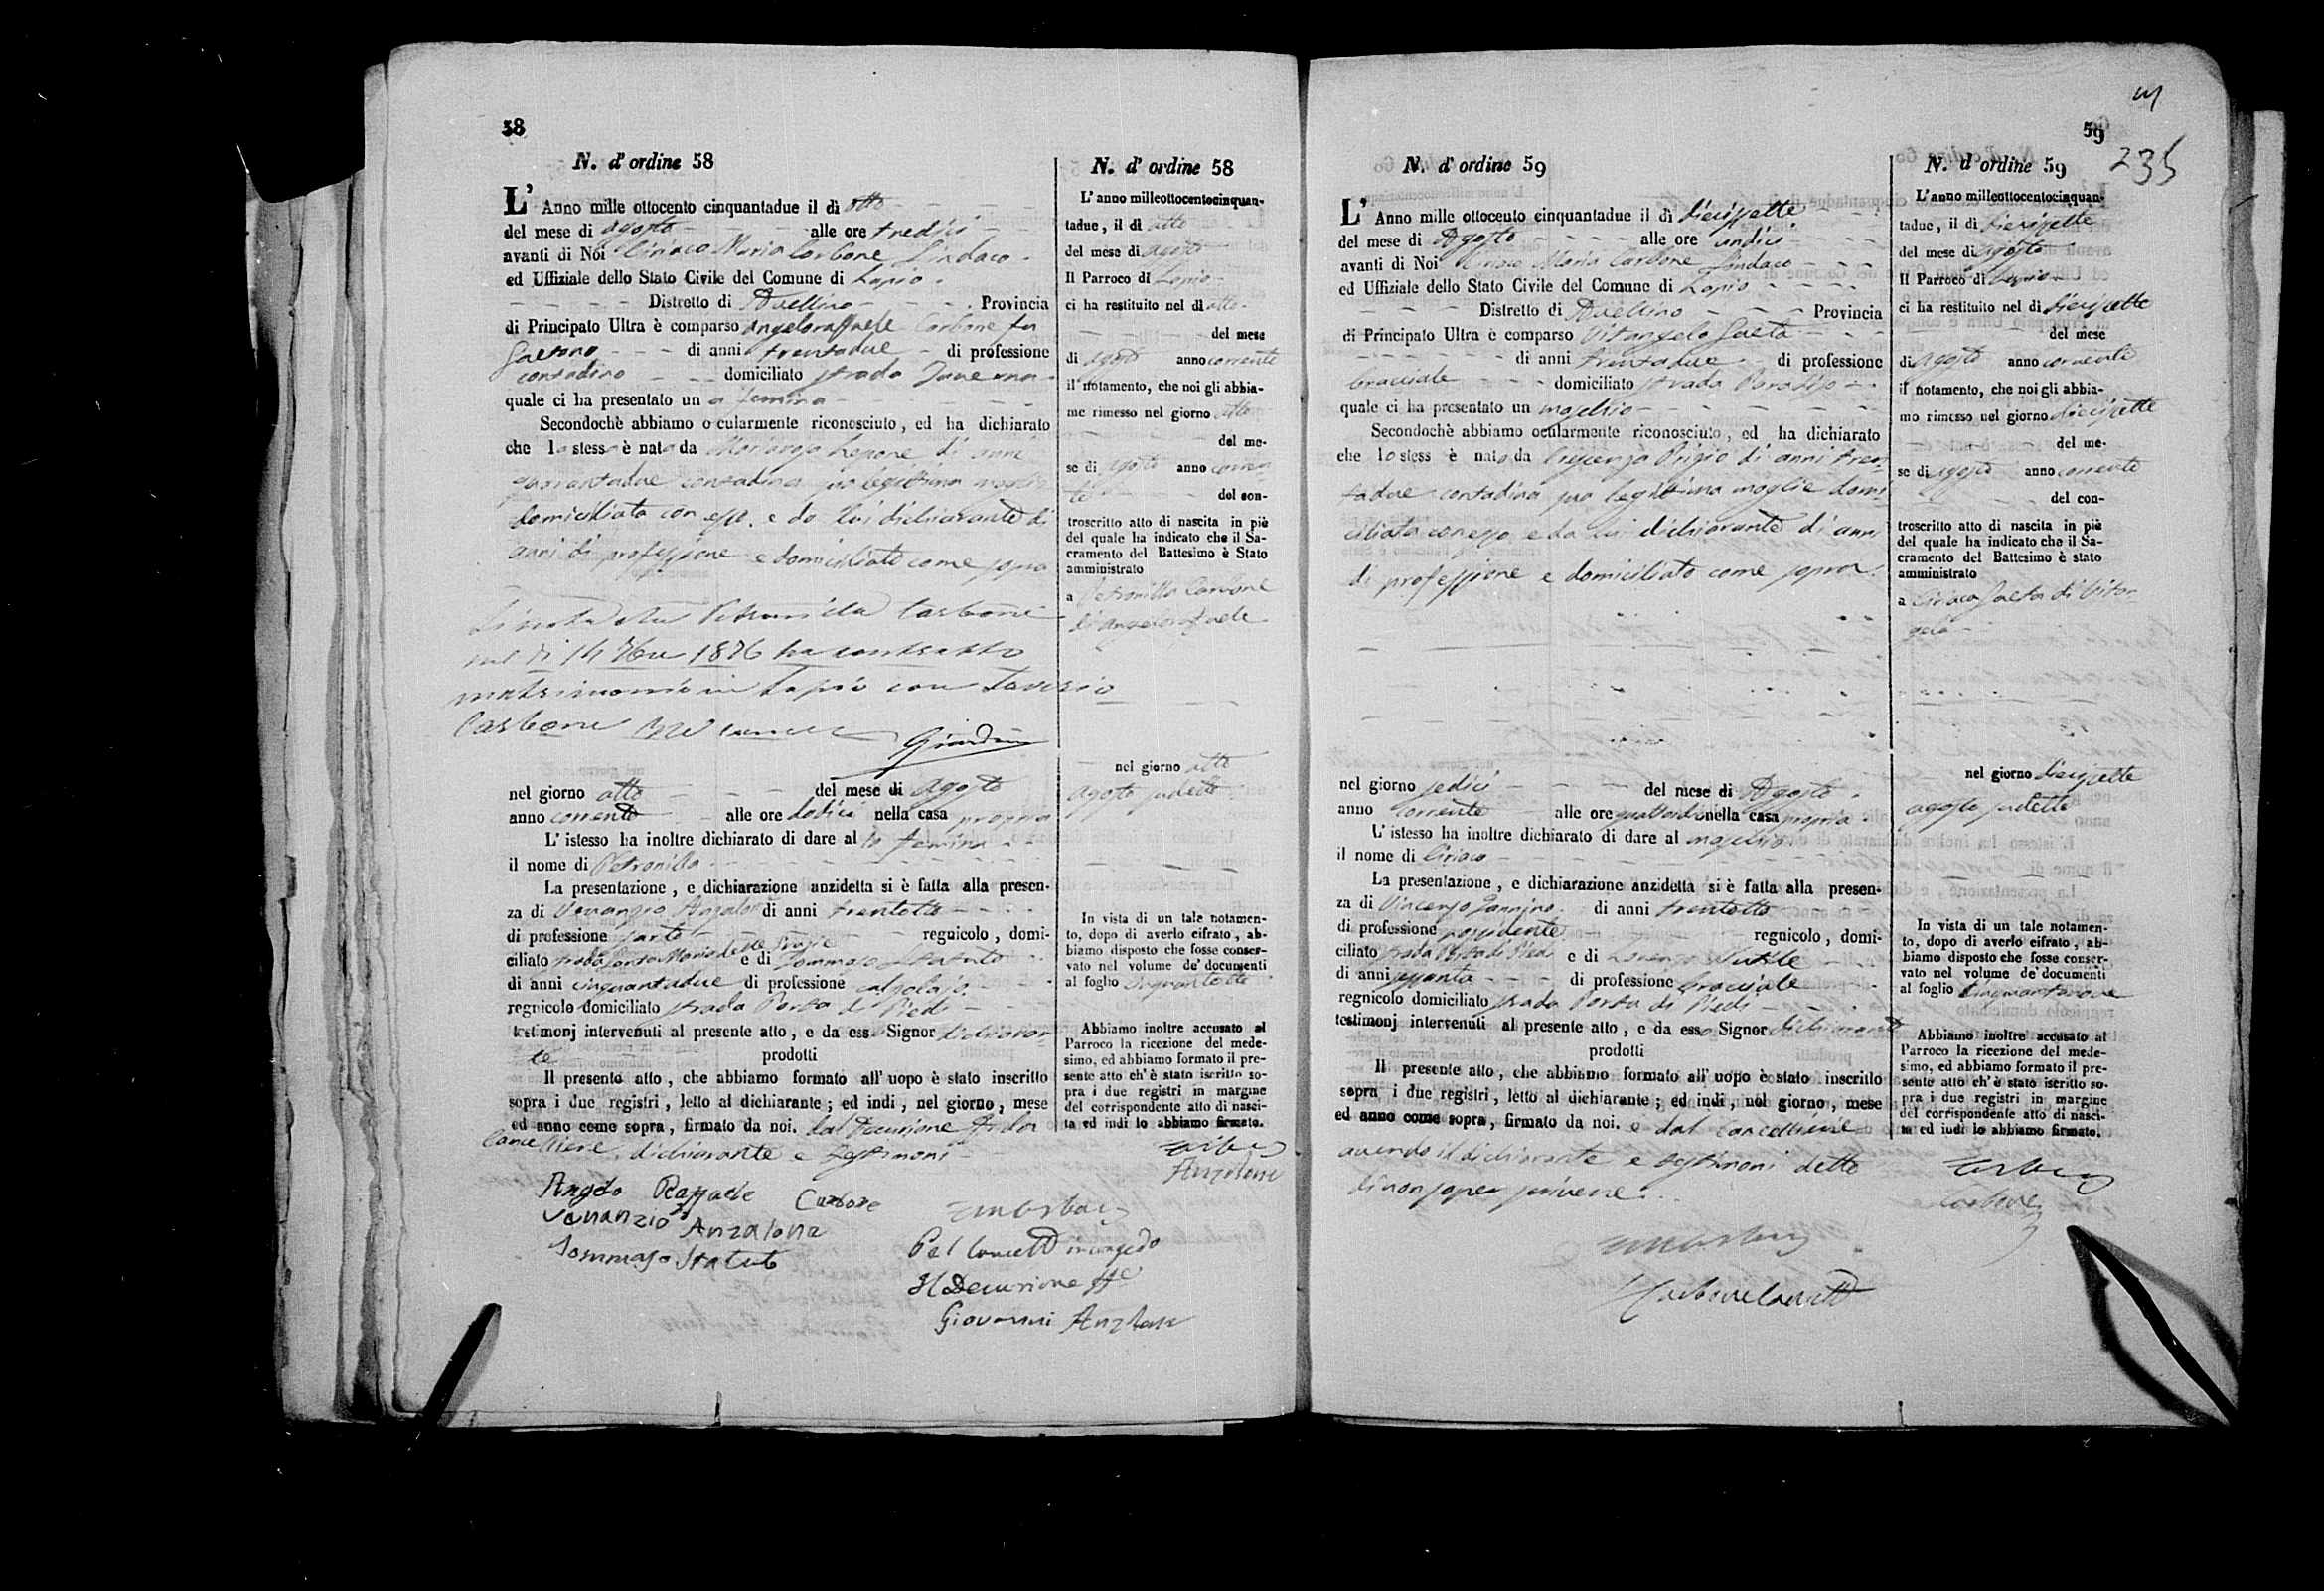 58
N. d' ordine 58
L' Anno mille ottocento cinquantadue il dì otto
del mese di agosto alle ore tredici
avanti di Noi Ciriaco Maria Carbone Sindaco
ed Uffiziale dello Stato Civile del Comune di Lapio
Distretto di Avellino Provincia
di Principato Ultra è comparso Angeloraffaele Carbone fu
Gaetano di anni trentadue di professione
contadino domiciliato strada
quale ci ha presentato un a femina
Secondochè abbiamo ocularmente riconosciuto, ed ha dichiarato
che la stessa è nata da di anni
quarantadue contadina sua legittima moglie
domiciliata con esso, e da lui dichiarante di
anni di professione e domiciliato come sopra
Petronilla Carbone
nel dì 14 7bre 1876 ha contratto
matrimonio in Lapio con Saverio
Carbone
nel giorno otto del mese di agosto
anno corrente alle ore dodici nella casa propria
L' istesso ha inoltre dichiarato di dare al la femina
il nome di Petronilla
La presentazione, e dichiarazione anzidetta si è fatta alla presen-
za di Venanzio Anzalone di anni trentotto
di professione sarto regnicolo, domi-
ciliato strada Santa Maria delle Grazie e di Tommaso Statuto
di anni cinquantadue di professione calzolajo
regnicolo domiciliato strada Porta di Piedi
testimonj intervenuti al presente atto, e da esso Signor dichiaran-
te prodotti
Il presente atto, che abbiamo formato all' uopo è stato inscritto
sopra i due registri, letto al dichiarante; ed indi, nel giorno, mese
ed anno come sopra, firmato da noi. dal Decurione
Cancelliere, dichiarante e testimoni
Angelo Raffaele Carbone
Venanzio Anzalone
Tommaso Statuto
Pel Cancell. in congedo
Il Decurione ff.
Giovanni Anzalone
N. d' ordine 58
L' anno milleottocentocinquan-
tadue, il dì otto
del mese di agosto
Il Parroco di Lapio
ci ha restituito nel dì otto
del mese
di agosto anno corrente
il notamento, che noi gli abbia-
mo rimesso nel giorno otto
del me-
se di agosto anno corren
te del con-
troscritto atto di nascita in piè
del quale ha indicato che il Sa-
cramento del Battesimo è Stato
amministrato
a Petronilla Carbone
di Angeloraffaele
nel giorno otto
agosto sudetto
In vista di un tale notamen-
to, dopo di averlo cifrato, ab-
biamo disposto che fosse conser-
vato nel volume de' documenti
al foglio cinquantotto
Abbiamo inoltre accusato al
Parroco la ricezione del mede-
simo, ed abbiamo formato il pre-
sente atto ch' è stato iscritto so-
pra i due registri in margine
del corrispondente atto di nasci-
ta ed indi lo abbiamo firmato.
Anzalone
59
235
N. d' ordine 59
L' Anno mille ottocento cinquantadue il dì diecissette
del mese di Agosto alle ore undici
avanti di Noi Ciriaco Maria Carbone Sindaco
ed Uffiziale dello Stato Civile del Comune di Lapio
Distretto di Avellino Provincia
di Principato Ultra è comparso Vitangelo Gaeta
di anni trentadue di professione
bracciale domiciliato strada Paradiso
quale ci ha presentato un maschio
Secondochè abbiamo ocularmente riconosciuto, ed ha dichiarato
che lo stess è nato da Crescenza Prizio di anni tren
tadue contadina sua legittima moglie domi
ciliata con esso e da lui dichiarante di anni
di professione e domiciliato come sopra.
nel giorno sedici del mese di Agosto
anno corrente alle ore quattordici nella casa propria
L' istesso ha inoltre dichiarato di dare al maschio
il nome di Ciriaco
La presentazione, e dichiarazione anzidetta si è fatta alla presen-
za di Vincenzo Jannino di anni trentotto
di professione possidente regnicolo, domi-
ciliato strada Porta di Piedi e di
di anni sessanta di professione bracciale
regnicolo domiciliato strada Porta di Piedi
testimonj intervenuti al presente atto, e da esso Signor dichiarante
prodotti
Il presente atto, che abbiamo formato all' uopo è stato inscritto
sopra i due registri, letto al dichiarante; ed indi, nel giorno, mese
ed anno come sopra, firmato da noi. e dal Cancelliere
avendo il dichiarante e testimoni detto
di non saper scrivere.
N. d' ordine 59
L' anno milleottocentocinquan-
tadue, il dì diecissette
del mese di agosto
Il Parroco di Lapio
ci ha restituito nel dì diecissette
del mese
di agosto anno corrente
il notamento, che noi gli abbia-
mo rimesso nel giorno diecissette
del me-
se di agosto anno corrente
del con-
troscritto atto di nascita in piè
del quale ha indicato che il Sa-
cramento del Battesimo è stato
amministrato
a Ciriaco Gaeta di Vitan-
gelo
nel giorno diecissette
agosto sudetto
In vista di un tale notamen-
to, dopo di averlo cifrato, ab-
biamo disposto che fosse conser-
vato nel volume de' documenti
al foglio cinquantanove
Abbiamo inoltre accusato al
Parroco la ricezione del mede-
simo, ed abbiamo formato il pre-
sente atto ch' è stato iscritto so-
pra i due registri in margine
del corrispondente atto di nasci-
ta ed indi lo abbiamo firmato.
Carbone